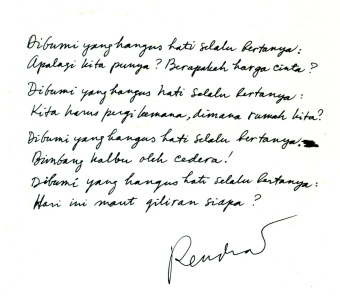 Dibumi yang hangus hati selalu bertanya:
Apalagi kita punya? Berapakah harga cinta?
Dibumi yang hangus hati selalu bertanya:
Kita harus pergi kemana, dimana rumah kita?
Dibumi yang hangus hati selalu bertanya.
Bimbang kalbu oleh cedera!
Dibumi yang hangus hati selalu bertanya:
Hari ini maut giliran siapa?
Rendra